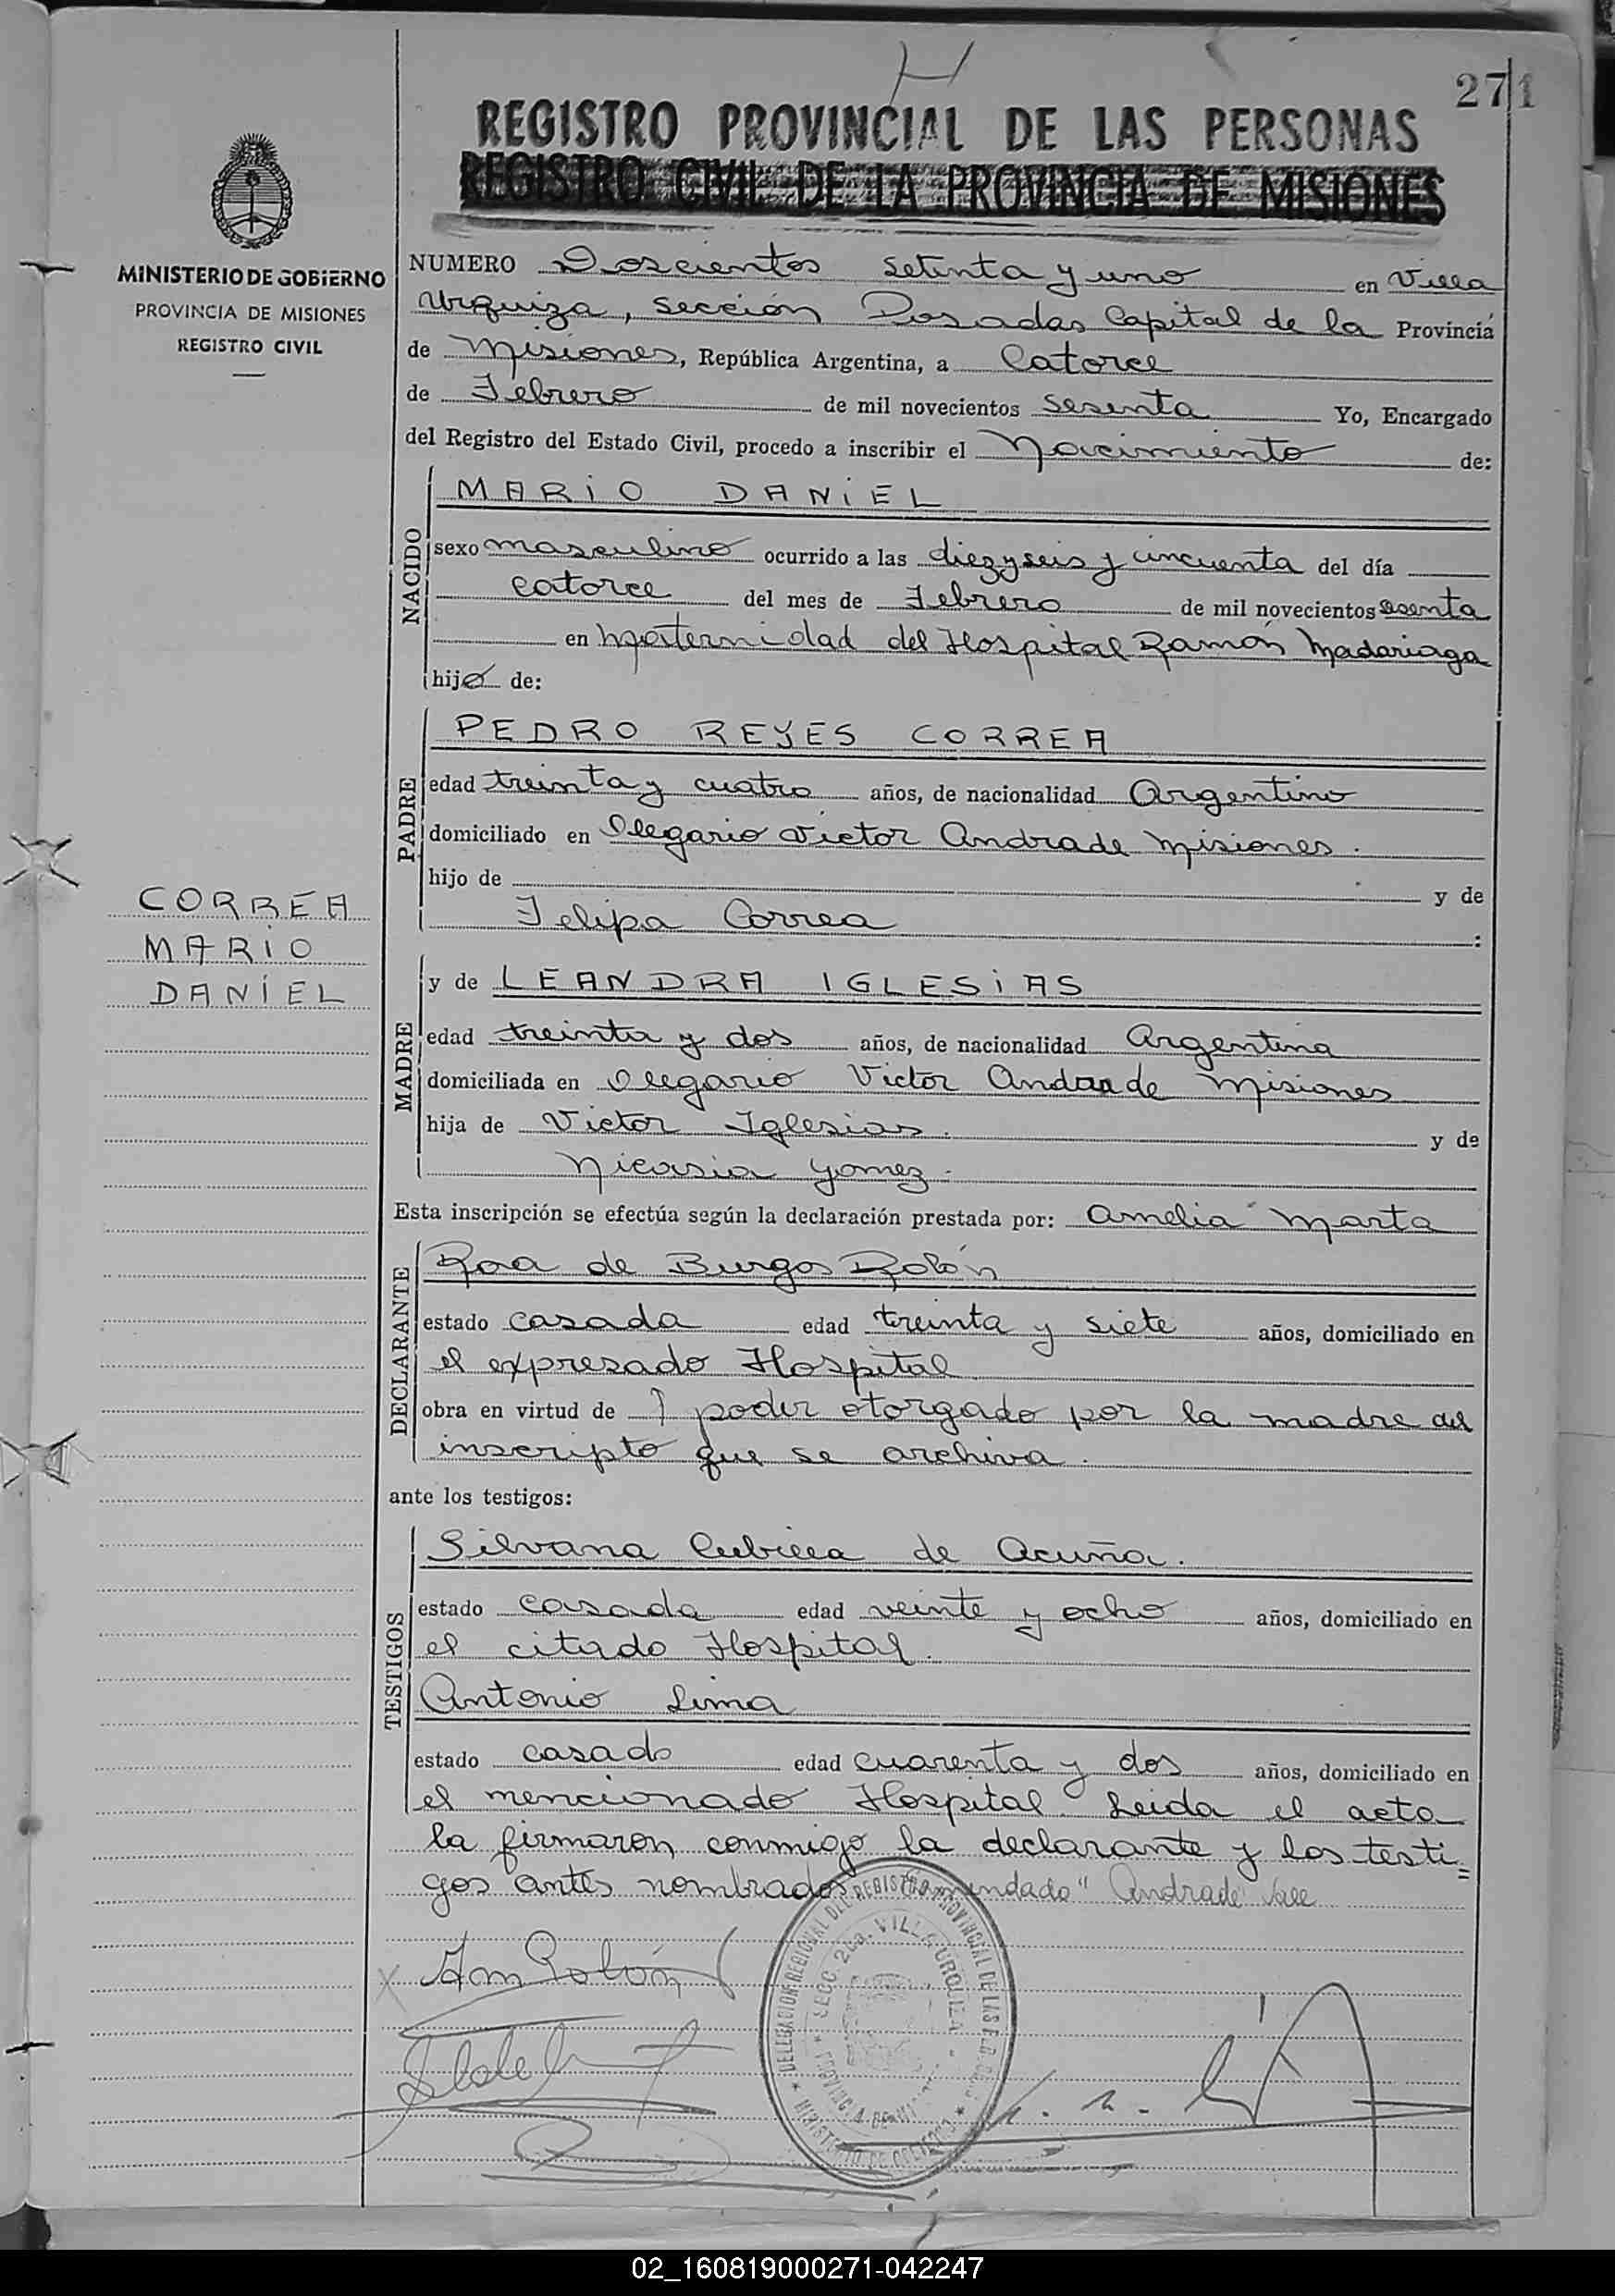 271
REGISTRO PROVINCIAL DE LAS PERSONAS
REGISTRO CIVIL DE LA PROVINCIA DE MISIONES
MINISTERIO DE GOBIERNO
PROVINCIA DE MISIONES
REGISTRO CIVIL
NUMERO Doscientos setenta y uno en Villa
Urquiza, sección Posadas Capital de la Provincia
de Misiones, República Argentina, a Catorce
de Febrero de mil novecientos sesenta Yo, Encargado
del Registro del Estado Civil, procedo a inscribir el Nacimiento de:
NACIDO
MARIO DANIEL
sexo masculino ocurrido a las diezyseis y cincuenta del día
catorce del mes de Febrero de mil novecientos sesenta
en Maternidad del Hospital Ramón Madariaga
hijo de:
PADRE
PEDRO REYES CORREA
edad treinta y cuatro años, de nacionalidad Argentino
domiciliado en Olegario Victor Andrade Misiones.
hijo de y de
Felipa Correa :
CORREA
MARIO
DANIEL
MADRE
y de LEANDRA IGLESIAS
edad treinta y dos años, de nacionalidad Argentina
domiciliada en Olegario Victor Andrade Misiones
hija de Victor Iglesias. y de
Nicasia Gomez.
Esta inscripción se efectúa según la declaración prestada por: Amelia Marta
DECLARANTE
Roa de Burgos Rolón
estado casada edad treinta y siete años, domiciliado en
el expresado Hospital
obra en virtud de 1 poder otorgado por la madre del
inscripto que se archiva.
ante los testigos:
TESTIGOS
Silvana Cubilla de Acuña.
estado casada edad veinte y ocho años, domiciliado en
el citado Hospital.
Antonio Lima
estado casado edad cuarenta y dos años, domiciliado en
el mencionado Hospital. Leida el acta
la firmaron conmigo la declarante y los testi=
gos antes nombrados. "Andrade" Vale
DELEGACION REGIONAL DEL REGISTRO PROVINCIAL DE LAS
SECC. 2da. VILLA URQUIZA
MINISTERIO DE GOBIERNO
02_160819000271-042247